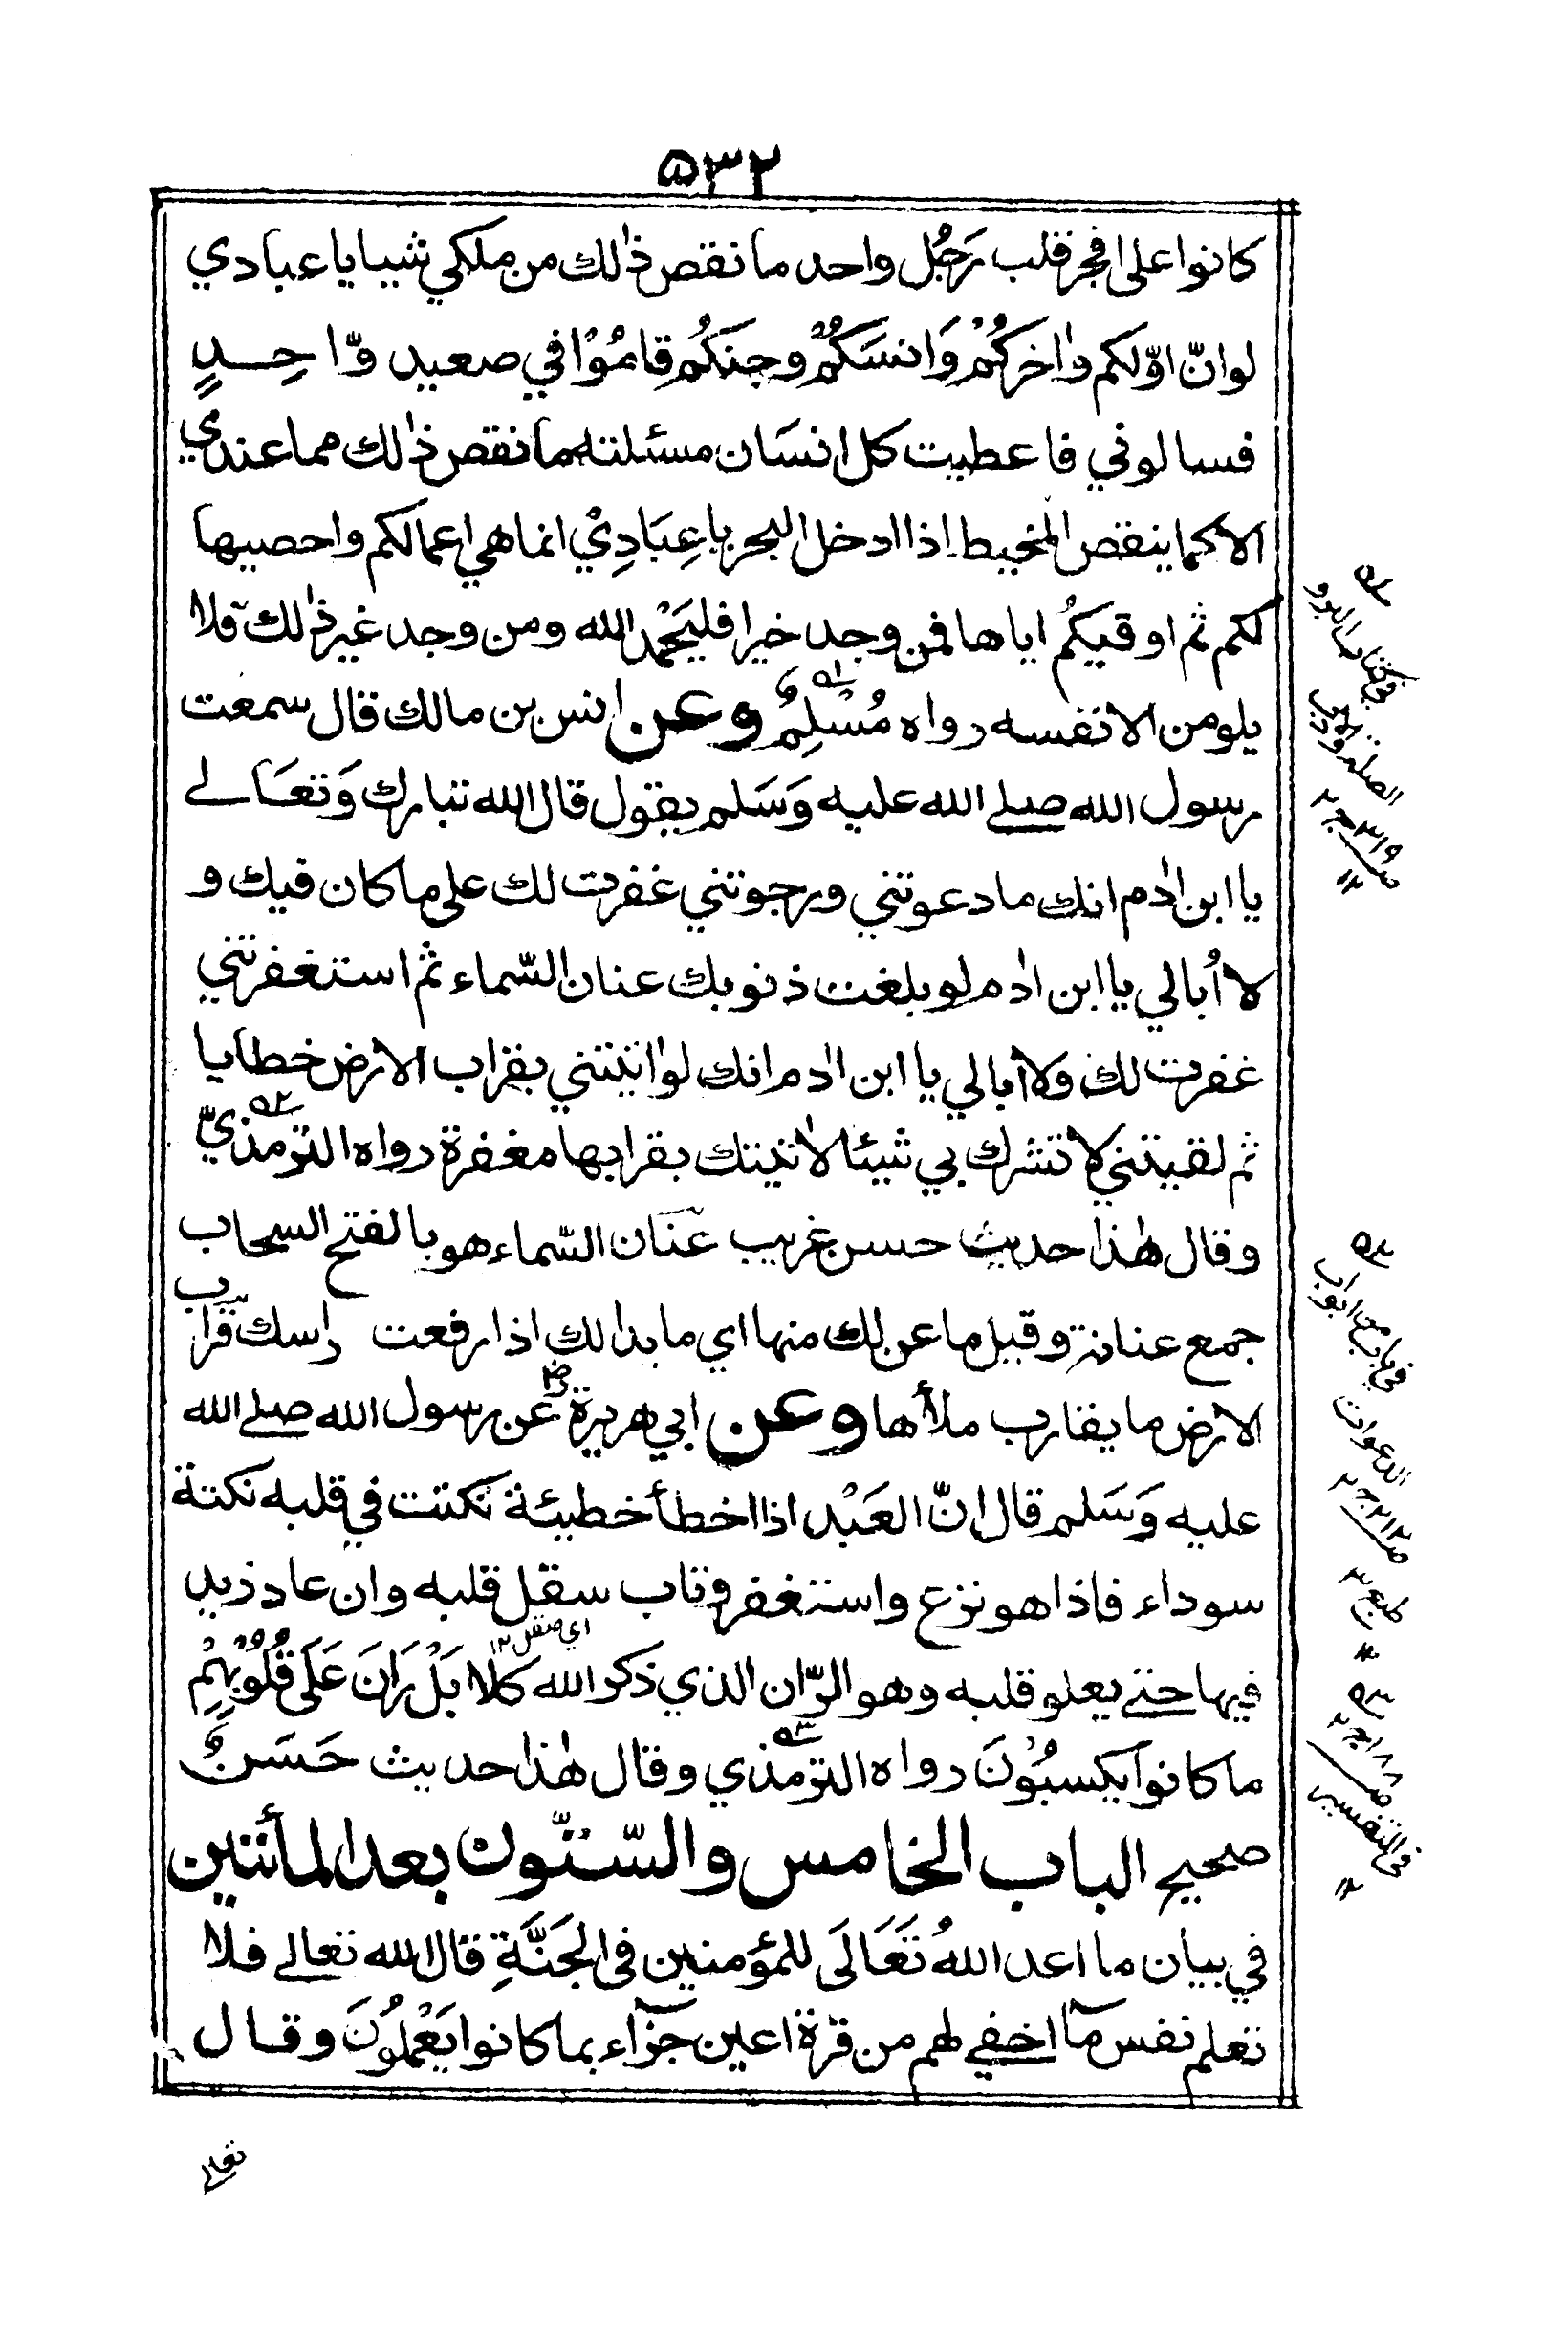 ٥٣٢
كانوا على افجر قلب رَجُل واحد ما نقص ذٰلك من ملكي شيبا يا عبادي
لوانّ اوّلكم واٰخركُمْ وَانسَكُمْ وجنكُم قامُوْا في صعيد وّاحِدٍ
فسالوني فاعطيت كل انسَان مسئلته مانقص ذٰلك مما عندي
الا كما ينقص المخيط اذا ادخل البحر يا عِبَادِيْ انما هي اعمالكم واحصيها
لكم ثم اوفيكُم اياها فمن وجد خيرا فليَحْمد الله ومن وجد غير ذٰلك فلا
يلومن الا نفسه رواه مُسْلِمٌ وعن انس بن مالك قال سمعت
رسول الله صلے الله عليه وَسَلم يقول قال الله تبارك وَتعَالے
يا ابن اٰدم انك ما دعوتني ورجوتني غفرت لك على ما كان فيك و
لا اُبالي يا ابن اٰدم لو بلغت ذنوبك عنان السّماء ثم استغفرتني
غفرت لك ولا اُبالي يا ابن اٰدم انك لو اتيتني بقراب الارض خطايا
ثم لقيتني لا تشرك بي شيئا لاتيتك بقرابها مغفرة رواه الترمذيّ
وقال هٰذا حديث حسن غريب عَنَان السّماء هو بالفتح السحاب
جمع عنانة وقيل ما عن لك منها اي ما بدا لك اذا رفعت راسك قراب
الارض ما يقارب ملأها وعن ابي هريرة رض عن رسول الله صلے الله
عليه وَسَلم قال انّ العَبْد اذا اخطأ خطيئة نكتت في قلبه نكتة
سوداء فاذا هو نزع واستغفر وتاب سقل قلبه وان عاد زيد
اي صقل ١٢
فيها حتے يعلو قلبه وهو الرّان الذي ذكر الله كلا بَلْ رَانَ عَلَى قُلُوْبِهِمْ
ما كانوا يكسبُوْنَ رواه الترمذي وقال هٰذا حديث حَسَنٌ
صحيح الباب الخامس والسّتّون بعد المأتين
في بيان ما اعد اللهُ تَعَالَى للمؤمنين فى الجَنَّةِ قال الله تعالے فلا
تعلم نفس مآ اخفے لهم من قرة اعين جزآء بما كانوا يَعْملُونَ وقال
تعالے
في كتاب البر و
الصلة والادب
ص٣١٩ ج٢
١٢
في باب من ابواب
الدعوات
ص٢١٣ ج٢
طبع ٣
في التفسير
١٢